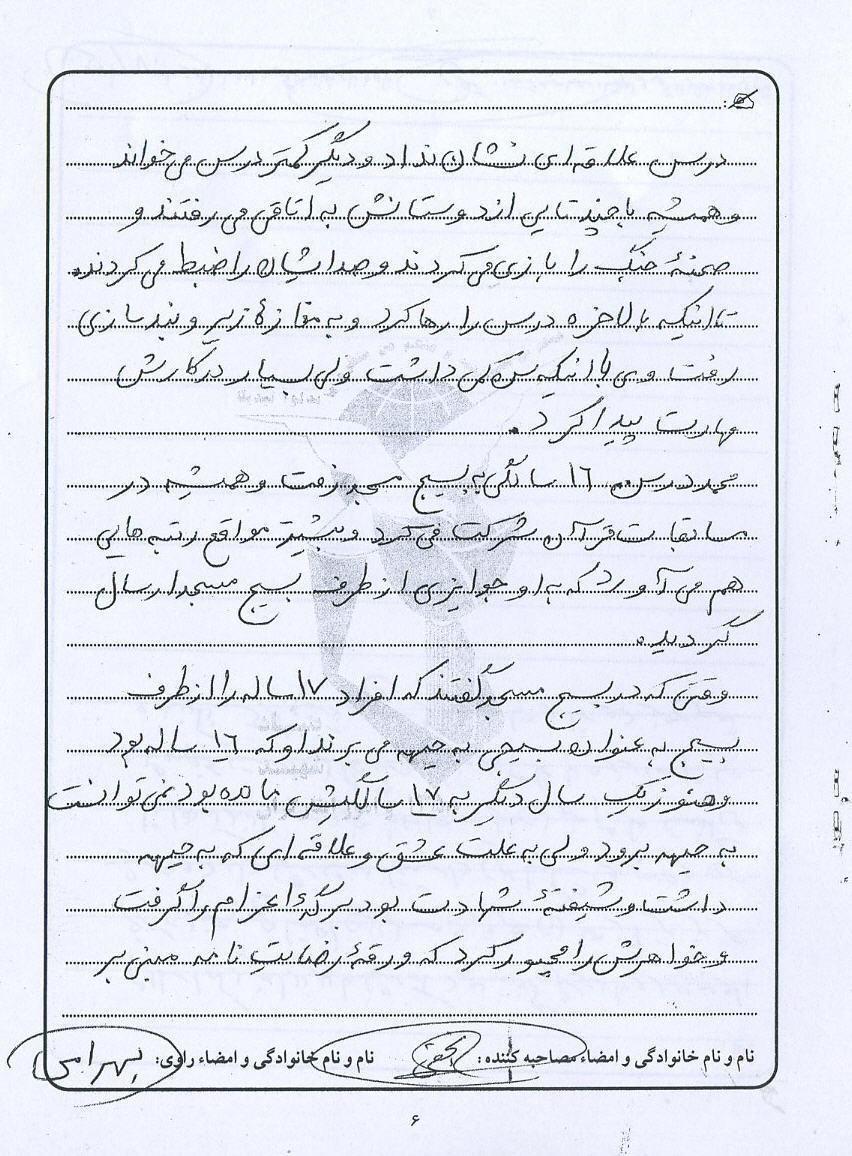 درس علاقه‌ای نشان نداد و دیگر کمتر درس می‌خواند
و همیشه با چند تایی از دوستانش به اتاقی می‌رفتند و
صحنهٔ جنگ را بازی می‌کردند و صدایشان را ضبط می‌کردند.
تا اینکه بالاخره درس را رها کرد و به مغازهٔ زیر و بند سازی
رفت وی با اینکه سن کمی داشت ولی بسیار در کارش
مهارت پیدا کرد.
محمد در سن ۱۶ سالگی به بسیج مسجد رفت و همیشه در
مسابقات قرآن شرکت می‌کرد و بیشتر مواقع رتبه‌هایی
هم می‌آورد که به او جوایزی از طرف بسیج مسجد ارسال
گردید.
وقتی که در بسیج مسجد گفتند که افراد ۱۷ ساله را از طرف
بسیج به عنوان بسیجی به جبهه می‌برند او که ۱۶ ساله بود
و هنوز یک سال دیگر به ۱۷ سالگیش مانده بود نمی‌توانست
به جبهه برود ولی به علت عشق و علاقه‌ای که به جبهه
داشت و شیفتهٔ شهادت بود برگهٔ اعزام را گرفت
و خواهرش را مجبور کرد که ورقهٔ رضایت نامه مبنی بر
نام و نام خانوادگی و امضاء مصاحبه کننده: نام و نام خانوادگی و امضاء راوی: بهرامی
۶